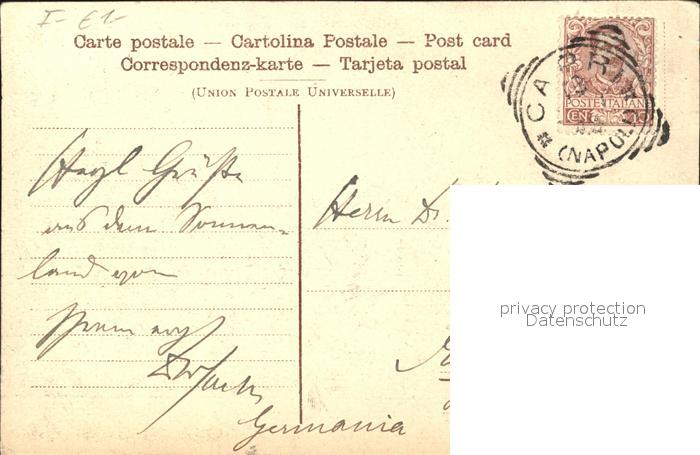 I- E1-
Carte postale — Cartolina Postale — Post card
Correspondenz-karte — Tarjeta postal
(UNION POSTALE UNIVERSELLE)
CAPRI
(NAPOLI)
POSTE ITALIAN
CEN
Herzl Grüße
aus dem Sonnen-
land von
Herrn Dr.
Germania
privacy protection
Datenschutz